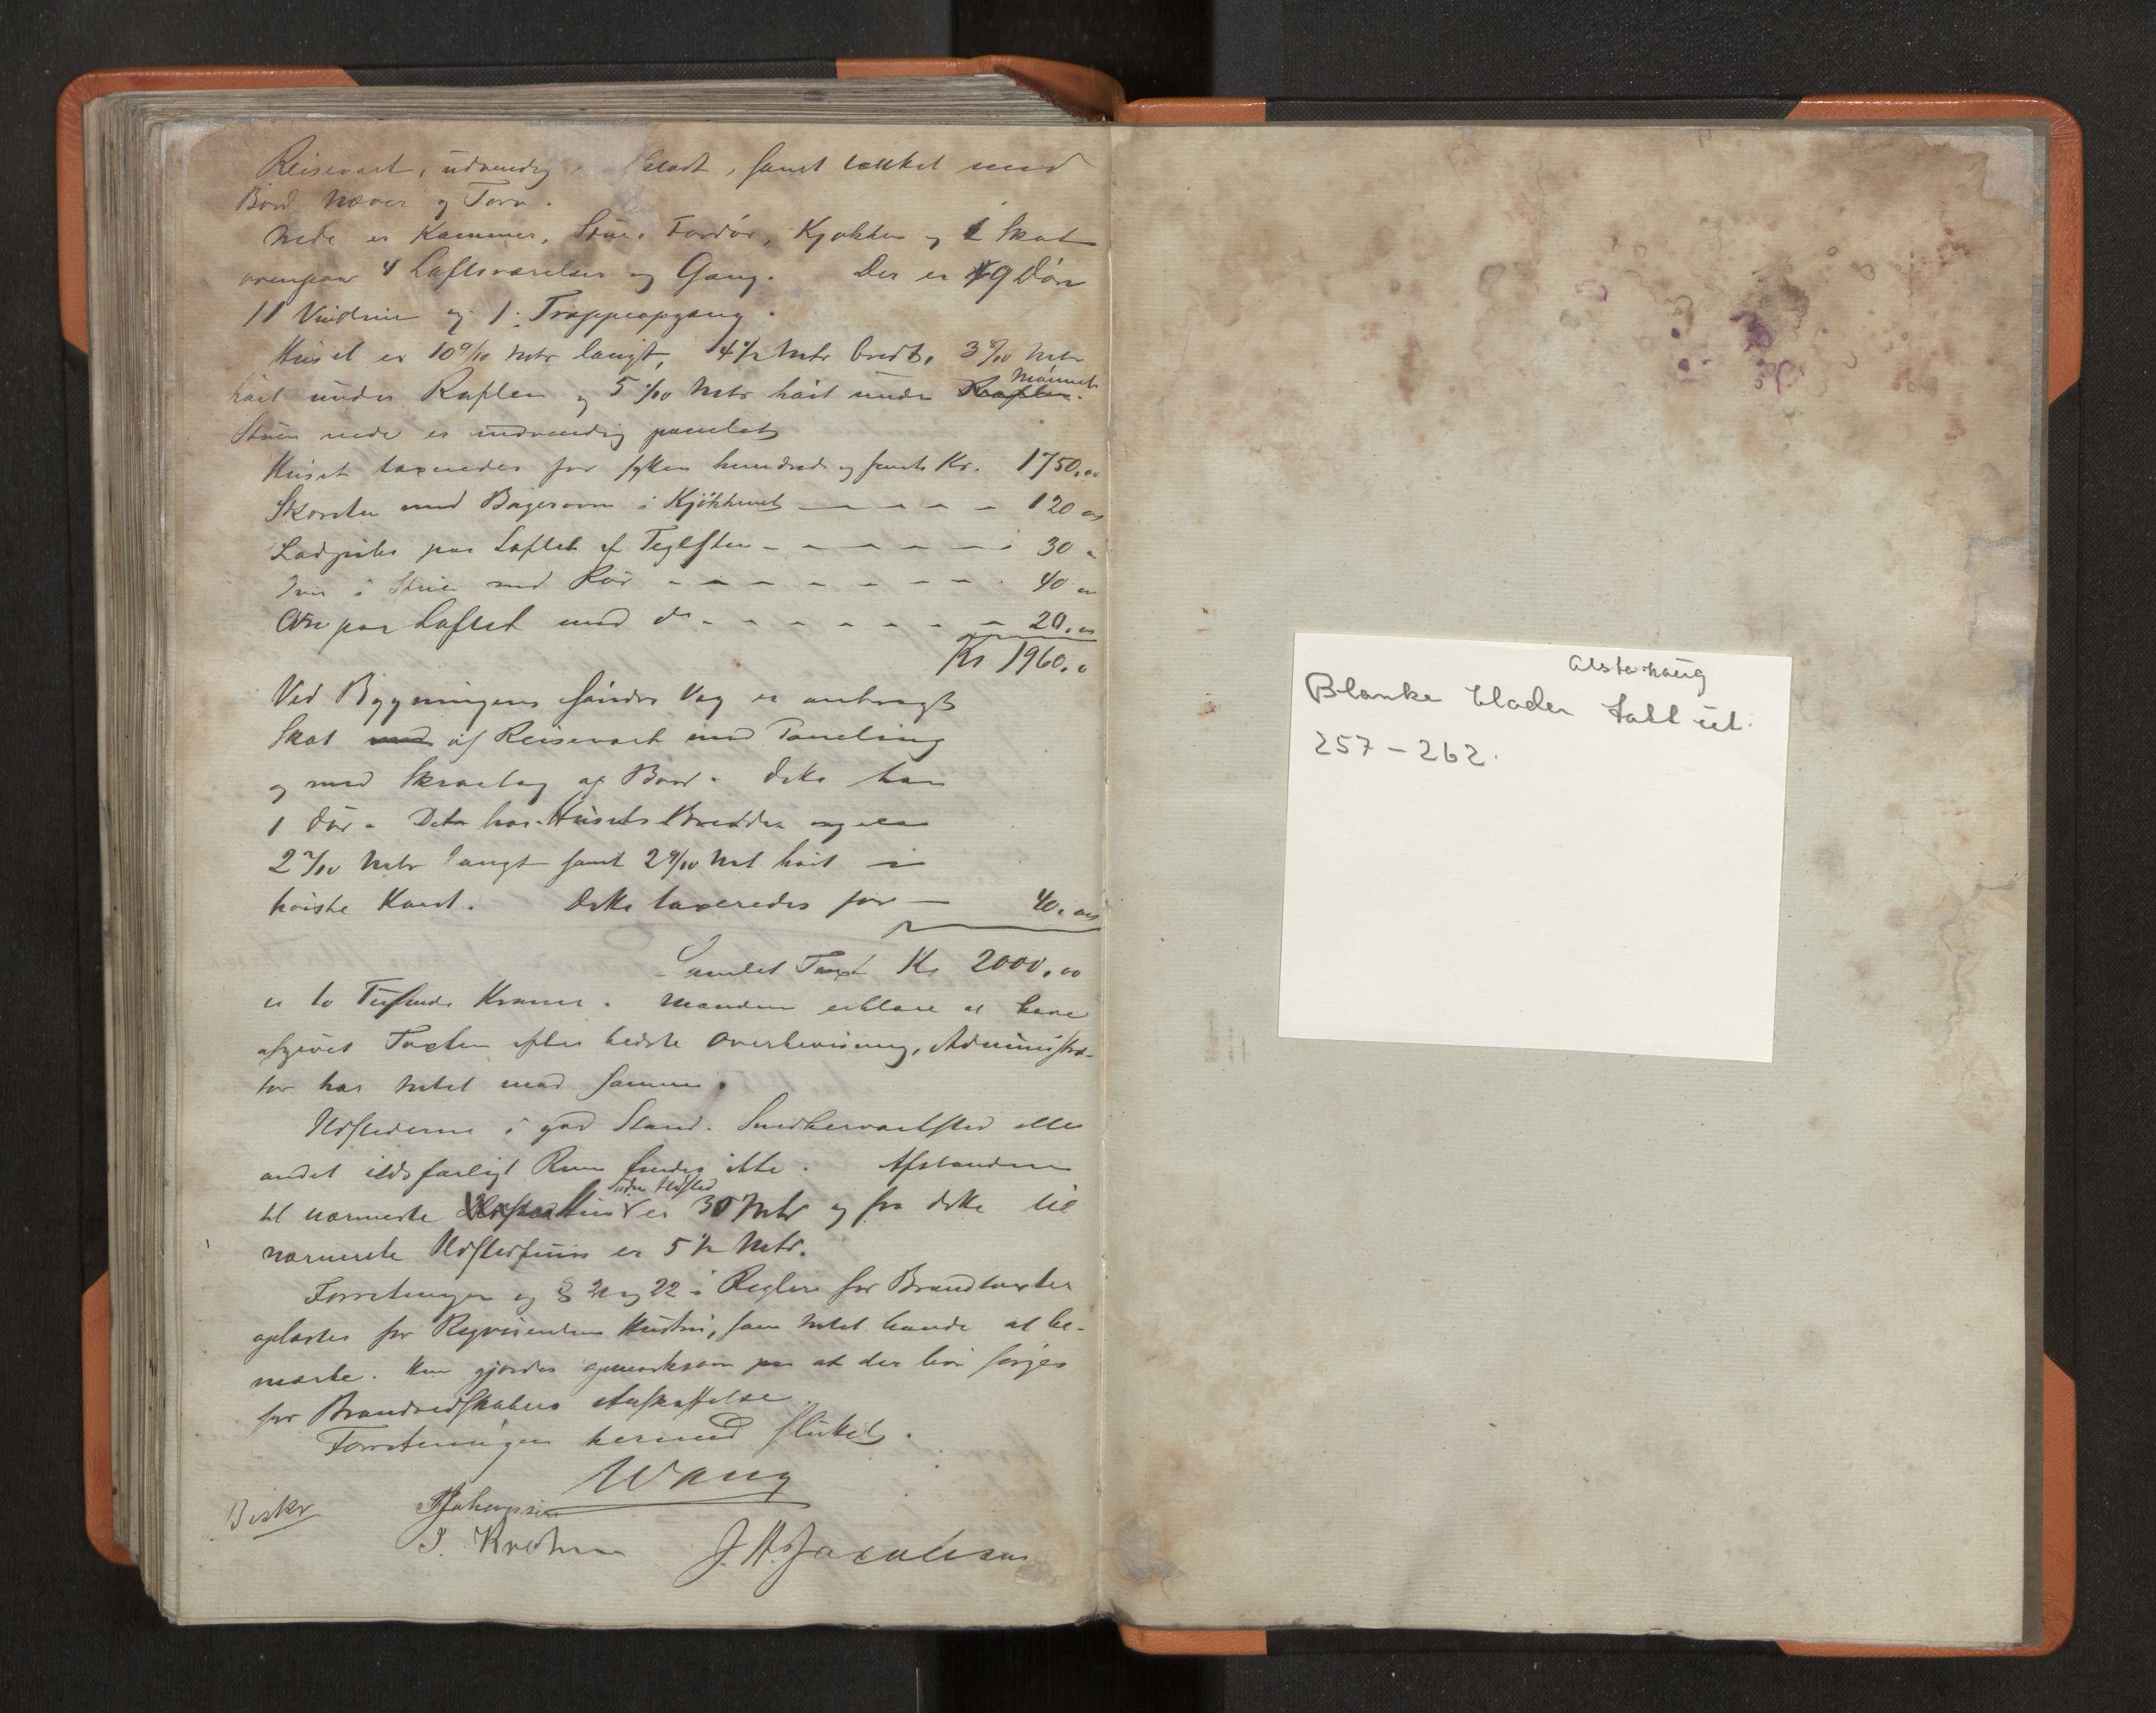 Reisevært, udvendig, klædt, samt tækket med
Bord Næver og Torv.
Nede er Kammer, Stue, Fordør, Kjøkken og 1 Skot
ovenpaa 4 Loftsværelser og Gang. Der er 9 Døre
11 Vinduer og 1 Trappeopgang.
Huset er 10 9/10 Mtr langt, 4 1/2 Mtr bredt, 3 Mtr
høit under Raften og 5 1/10 Mtr høit under Raften. Mønnet
Stuen nede er indvendig panelet
Huset taxeredes for sytten hundrede og femti Kr. 1750,00
Skorsten med Bagerovn i Kjøkkenet — 120 00
Ladpibe paa Loftet af Teglsten — 30 "
Ovn i Stuen med Rør — 40 "
Ovn paa Loftet med do — 20,00
Kr 1960,0
Ved Bygningens søndre Væg er anbragt
Skot med af Reisevært med Paneling
og med Skraatag af Bord. Dette har
1 Dør. Dette har Husets Bredde og er
2 7/10 Mtr langt samt 2 9/10 Mt høit i
høiste Kant. Dette taxeredes for — 40,00
Samlet Taxt Kr 2000,00
er to Tusinde Kroner. Mændene erklære at have
afgivet Taxten efter bedste Overbevisning, Administra-
tor har Intet mod samme.
Ildstederne i god Stand. Snedkerværksted eller
andet ildsfarligt Rum findes ikke. Afstanden
til nærmeste Hus uden Ildsted er 30 Mtr og fra dette til
nærmeste Ildstedhuus er 5 1/2 Mtr.
Forretningen og § 21 og 22 i Reglerne for Brandtaxter
oplæstes for Reqvirentens Hustru, som Intet havde at be-
mærke. Hun gjordes opmærksom paa at der bør sørges
for Brandredskabers Anskaffelse.
Forretningen hermed sluttet.
Wang
Beskr
P Johansen
P. Krohn J. H. Jacobsen
Alstahaug
Blanke blader tatt ut.
257 – 262.